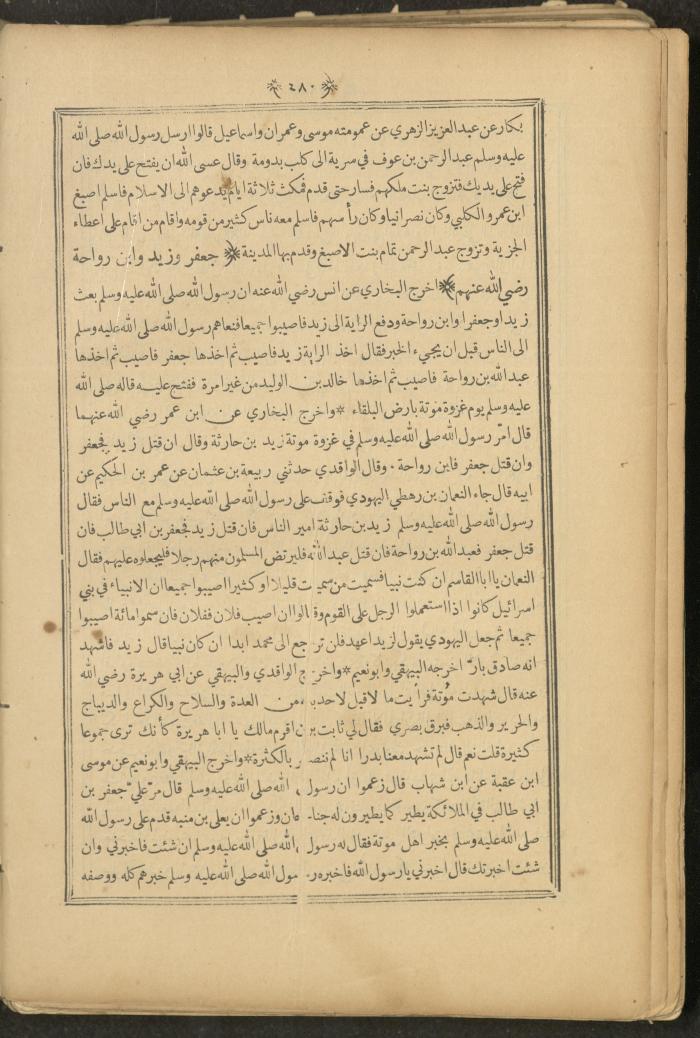 ٤٨٠
بكار عن عبد العزيز الزهري عن عمومته موسى وعمران واسماعيل قالوا ارسل رسول الله صلى الله
عليه وسلم عبد الرحمن بن عوف في سرية الى كلب بدومة وقال عسى الله ان يفتح على يدك فان
فتح على يديك فتزوج بنت ملكهم فسار حتى قدم فمكث ثلاثة ايام يدعوهم الى الاسلام فاسلم اصبغ
ابن عمرو الكلبي وكان نصرانيا وكان رأسهم فاسلم معه ناس كثير من قومه واقام من اقام على اعطاء
الجزية وتزوج عبد الرحمن تماضر بنت الاصبغ وقدم بها المدينة * جعفر وزيد وابن رواحة
رضي الله عنهم * اخرج البخاري عن انس رضي الله عنه ان رسول الله صلى الله عليه وسلم بعث
زيدا وجعفرا وابن رواحة ودفع الراية الى زيد فاصيبوا جميعا فنعاهم رسول الله صلى الله عليه وسلم
الى الناس قبل ان يجيء الخبر فقال اخذ الراية زيد فاصيب ثم اخذها جعفر فاصيب ثم اخذها
عبد الله بن رواحة فاصيب ثم اخذها خالد بن الوليد من غير امرة ففتح عليه قاله صلى الله
عليه وسلم يوم غزوة مؤتة بارض البلقاء * واخرج البخاري عن ابن عمر رضي الله عنهما
قال امّر رسول الله صلى الله عليه وسلم في غزوة موتة زيد بن حارثة وقال ان قتل زيد فجعفر
وان قتل جعفر فابن رواحة . وقال الواقدي حدثني ربيعة بن عثمان عن عمر بن الحكيم عن
ابيه قال جاء النعمان بن رهطي اليهودي فوقف على رسول الله صلى الله عليه وسلم مع الناس فقال
رسول الله صلى الله عليه وسلم زيد بن حارثة امير الناس فان قتل زيد فجعفر بن ابي طالب فان
قتل جعفر فعبد الله بن رواحة فان قتل عبد الله فليرتض المسلمون منهم رجلا فليجعلوه عليهم فقال
النعمان يا ابا القاسم ان كنت نبيا فسميت من سميت قليلا او كثيرا اصيبوا جميعا ان الانبياء في بني
اسرائيل كانوا اذا استعملوا الرجل على القوم وقالوا ان اصيب فلان ففلان فان سموا مائة اصيبوا
جميعا ثم جعل اليهودي يقول لزيد اعهد فلن ترجع الى محمد ابدا ان كان نبيا قال زيد فاشهد
انه صادق بارّ اخرجه البيهقي وابو نعيم * واخرج الواقدي والبيهقي عن ابي هريرة رضي الله
عنه قال شهدت مؤتة فرأيت ما لا قبل لاحد به من العدة والسلاح والكراع والديباج
والحرير والذهب فبرق بصري فقال لي ثابت بن اقرم مالك يا ابا هريرة كأنك ترى جموعا
كثيرة قلت نعم قال لم تشهد معنا بدرا انا لم ننصر بالكثرة * واخرج البيهقي وابو نعيم عن موسى
ابن عقبة عن ابن شهاب قال زعموا ان رسول الله صلى الله عليه وسلم قال مرّ عليّ جعفر بن
ابي طالب في الملائكة يطير كما يطيرون له جناحان وزعموا ان يعلى بن منبه قدم على رسول الله
صلى الله عليه وسلم بخبر اهل موتة فقال له رسول الله صلى الله عليه وسلم ان شئت فاخبرني وان
شئت اخبرتك قال اخبرني يا رسول الله فاخبره رسول الله صلى الله عليه وسلم خبرهم كله ووصفه